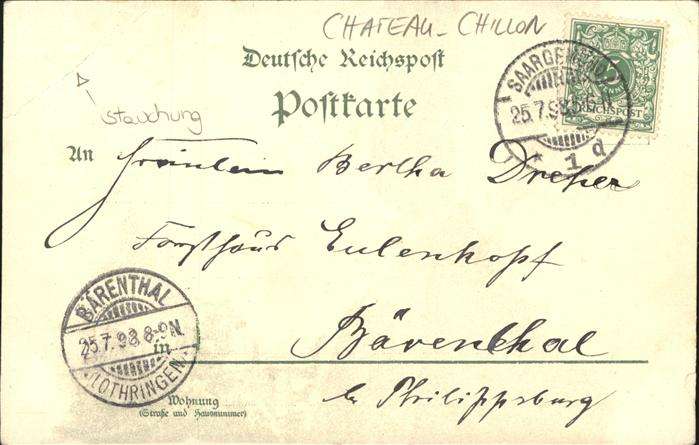 CHATEAU - CHILLON
Deutsche Reichspost
Postkarte
Stauchung
SAARGEMÜND
25.7.98
1 d
REICHSPOST
An Fräulein Bertha Dreher
Forsthaus Eulenkopf
Bärenthal
in
be Philippsburg
BÄRENTHAL
25.7.98 8-9N.
(LOTHRINGEN)
Wohnung
(Straße und Hausnummer)